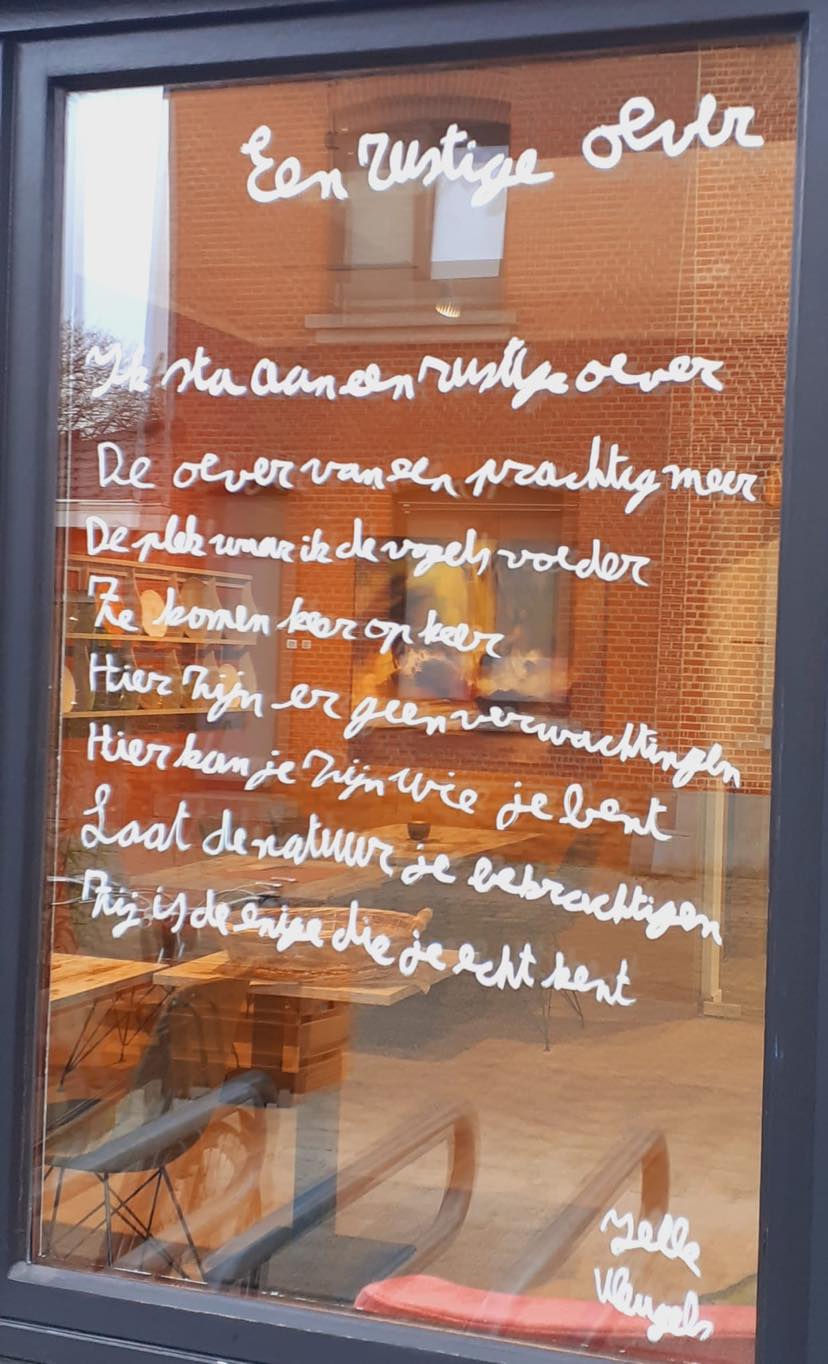 Een rustige oever
Ik sta aan een rustige oever
De oever van een prachtig meer
De plek waar ik de vogels voeder
Ze komen keer op keer
Hier zijn er geen verwachtingen
Hier kan je zijn wie je bent
Laat de natuur je bekrachtigen
Zij is de enige die je echt kent
Jelle
Vleugels